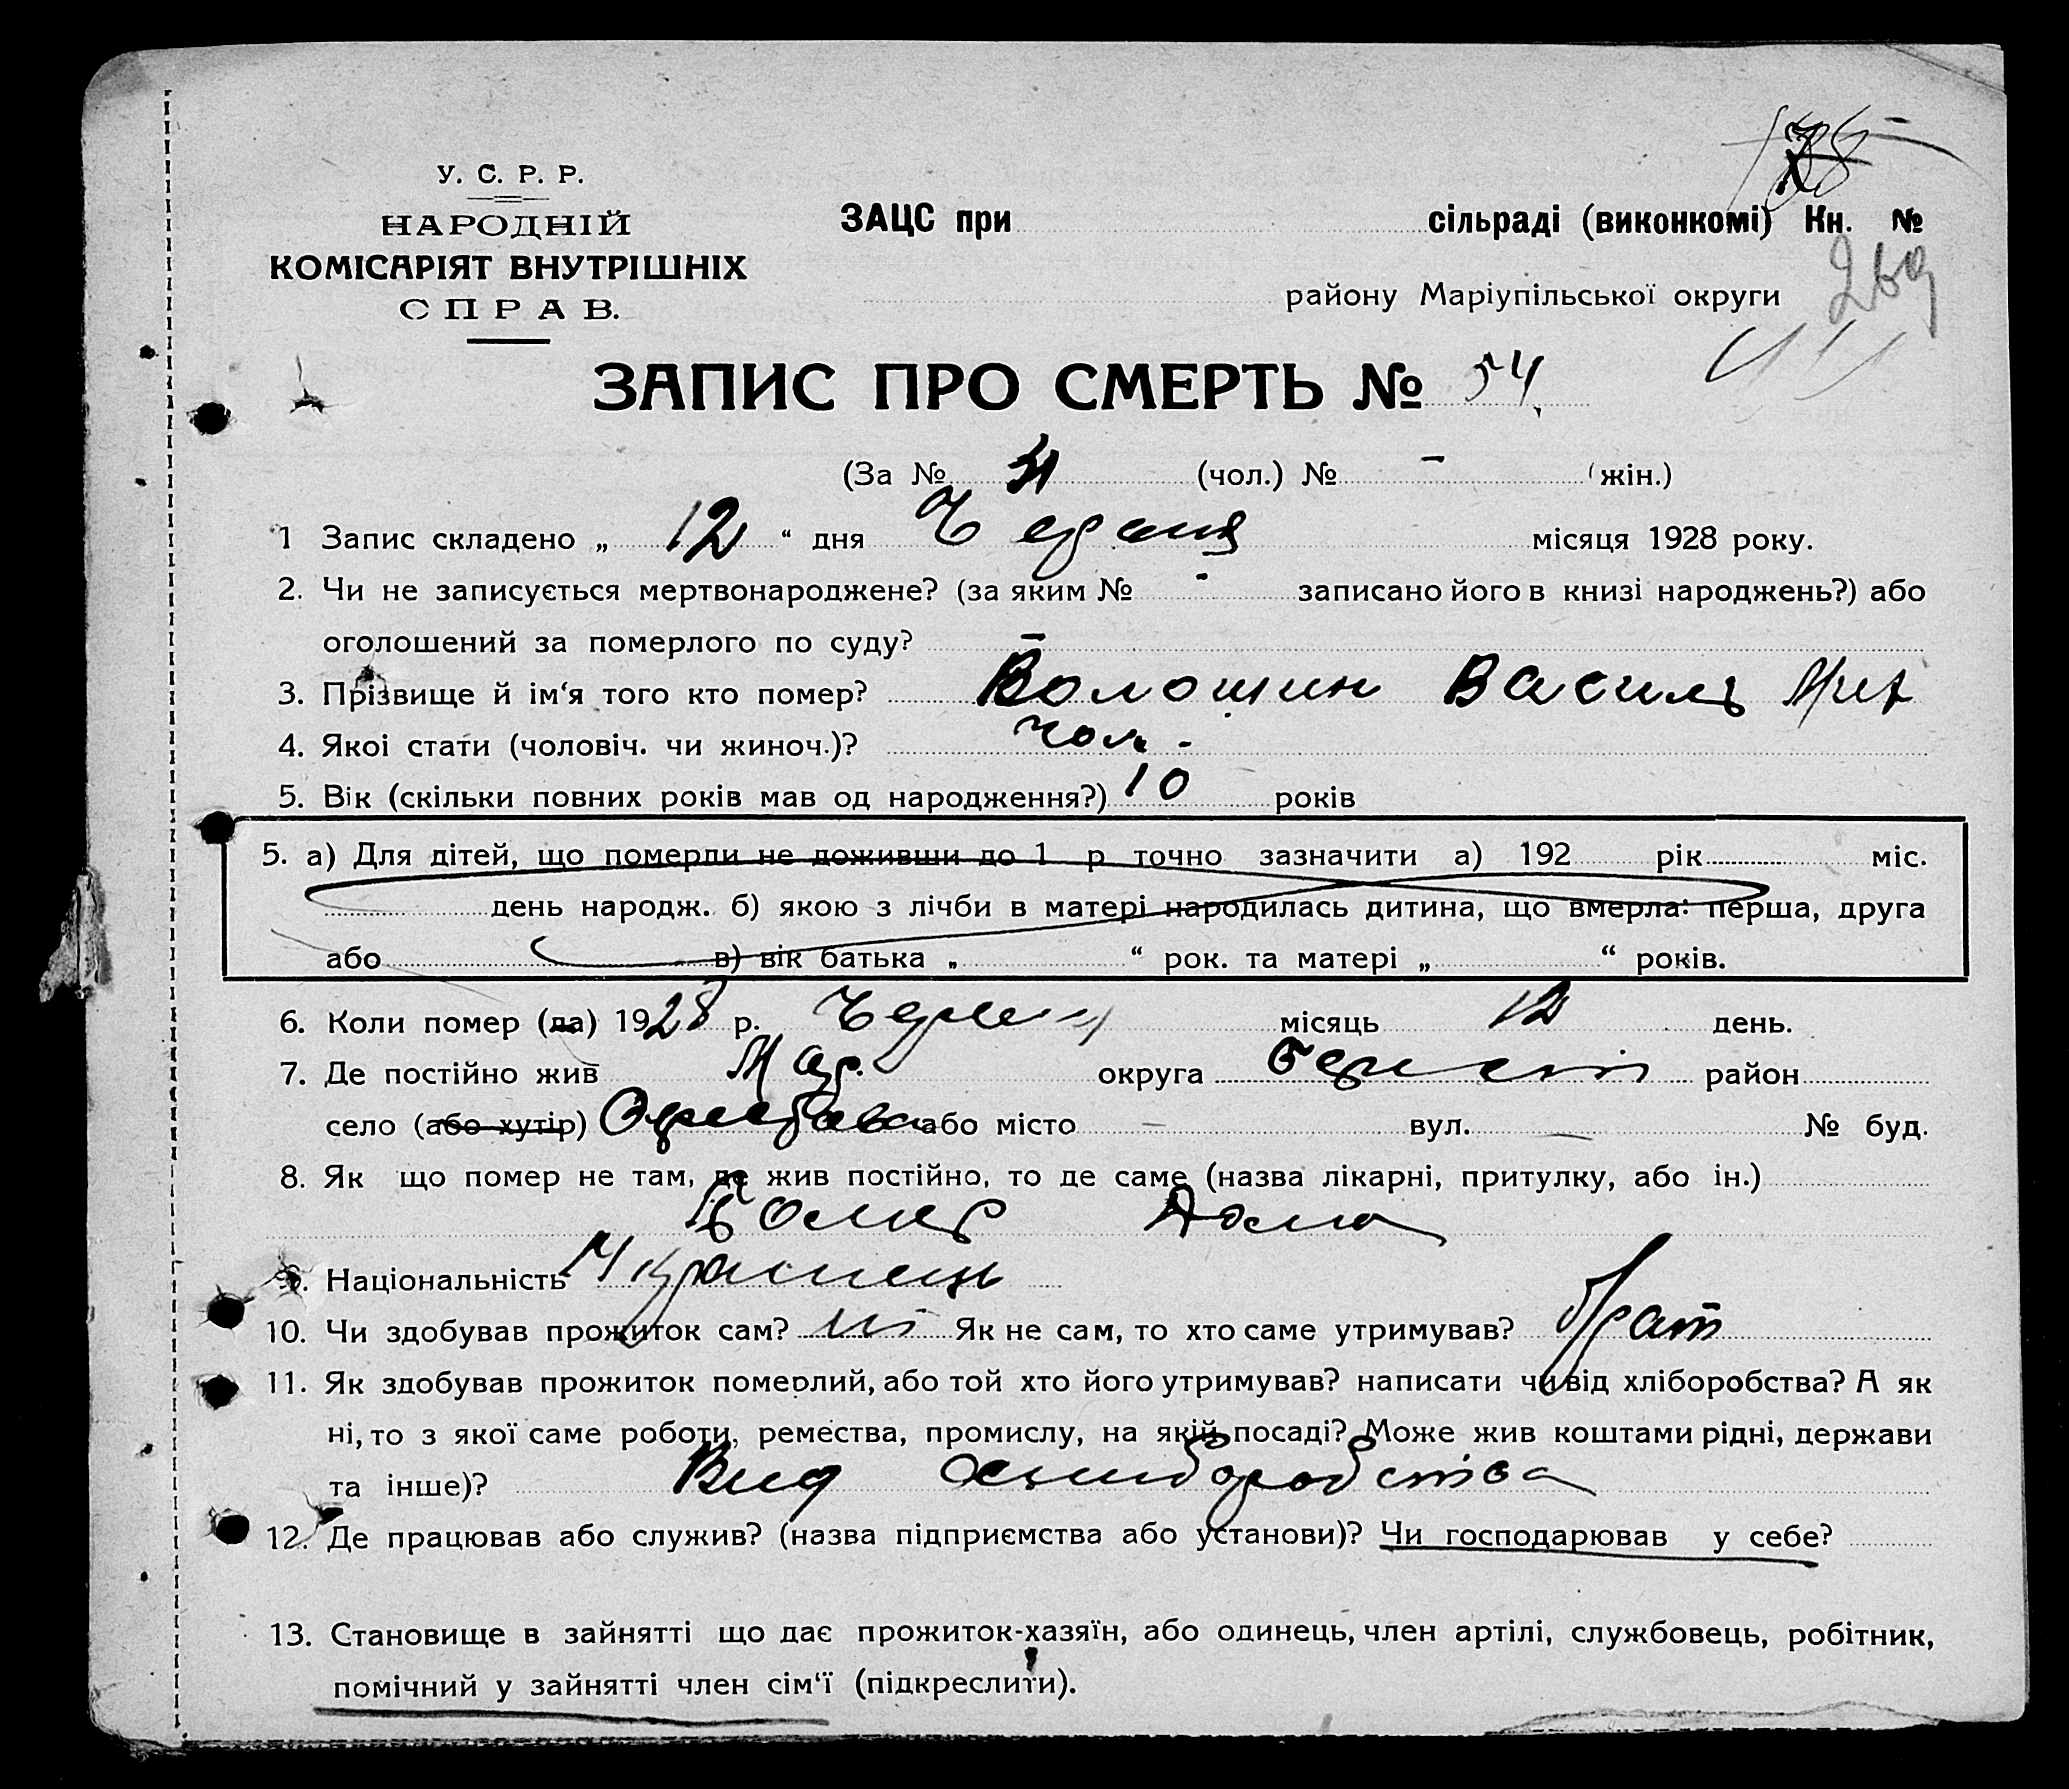 У. С. Р. Р.
НАРОДНІЙ
КОМІСАРІЯТ ВНУТРІШНІХ
СПРАВ.
ЗАЦС при сільраді (виконкомі) Кн. №
району Маріупільської округи
269
ЗАПИС ПРО СМЕРТЬ № 54
(За № (чол.) № - (жін.)
1 Запис складено „ 12 “ дня Червня місяця 1928 року.
2. Чи не записується мертвонароджене? (за яким № - записано його в книзі народжень?) або
оголошений за померлого по суду? -
3. Прізвище й ім‘я того кто помер? Волошин Василь Мит
4. Якоі стати (чоловіч. чи жиноч.)? Чол. -
5. Вік (скільки повних років мав од народження?) 10 років
5. а) Для дітей, що померли не доживши до 1 р точно зазначити а) 192 рік міс.
день народж. б) якою з лічби в матері народилась дитина, що вмерла: перша, друга
або в) вік батька „ “ рок. та матері „ “ років.
6. Коли помер (ла) 1928 р. Червень місяць 12 день.
7. Де постійно жив Мар. округа район
село (або хутір) або місто — вул. — № буд.
8. Як що помер не там, де жив постійно, то де саме (назва лікарні, притулку, або ін.)
Помер Дома
9. Національність Украинець
10. Чи здобував прожиток сам? ні Як не сам, то хто саме утримував? брат
11. Як здобував прожиток померлий, або той хто його утримував? написати чи від хліборобства? А як
ні, то з якої саме роботи, ремества, промислу, на якій посаді? Може жив коштами рідні, держави
та інше)? Вид хлиборобства
12. Де працював або служив? (назва підприємства або установи)? Чи господарював у себе?
13. Становище в зайнятті що дає прожиток-хазяїн, або одинець, член артілі, службовець, робітник,
помічний у зайнятті член сім‘ї (підкреслити).